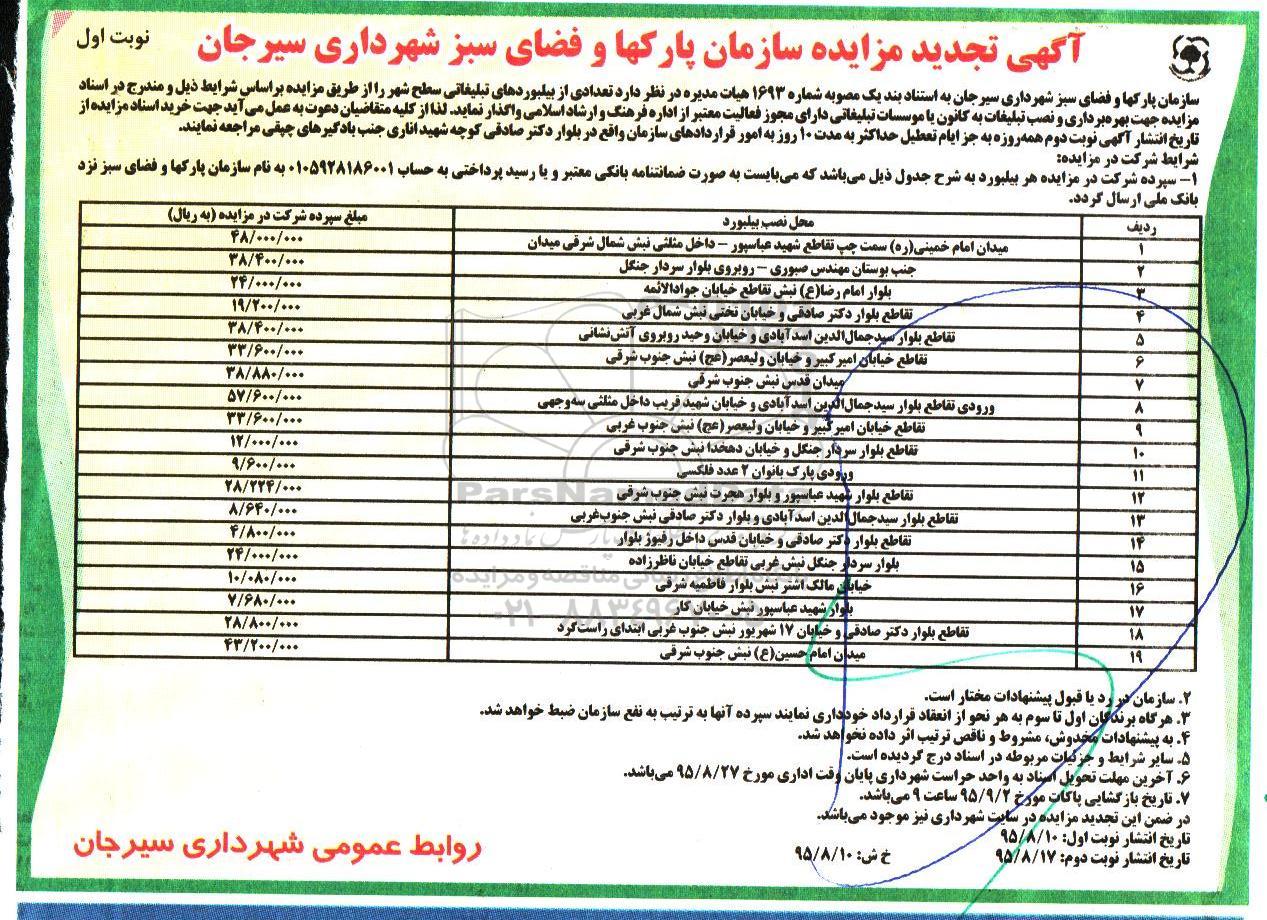 آگهی تجدید مزایده سازمان پارکها و فضای سبز شهرداری سیرجان
نوبت اول
سازمان پارکها و فضای سبز شهرداری سیرجان به استناد بند یک مصوبه شماره ۱۶۹۳ هیات مدیره در نظر دارد تعدادی از بیلبوردهای تبلیغاتی سطح شهر را از طریق مزایده براساس شرایط ذیل و مندرج در اسناد
مزایده جهت بهره‌برداری و نصب تبلیغات به کانون یا موسسات تبلیغاتی دارای مجوز فعالیت معتبر از اداره فرهنگ و ارشاد اسلامی واگذار نماید. لذا از کلیه متقاضیان دعوت به عمل می‌آید جهت خرید اسناد مزایده از
تاریخ انتشار آگهی نوبت دوم همه‌روزه به جز ایام تعطیل حداکثر به مدت ۱۰ روز به امور قراردادهای سازمان واقع در بلوار دکتر صادقی کوچه شهید اناری جنب بادگیرهای چپقی مراجعه نمایند.
شرایط شرکت در مزایده:
۱- سپرده شرکت در مزایده هر بیلبورد به شرح جدول ذیل می‌باشد که می‌بایست به صورت ضمانتنامه بانکی معتبر و یا رسید پرداختی به حساب ۰۱۰۵۹۲۸۱۸۶۰۰۱ به نام سازمان پارکها و فضای سبز نزد
بانک ملی ارسال گردد.
ردیف محل نصب بیلبورد مبلغ سپرده شرکت در مزایده (به ریال)
۱ میدان امام خمینی(ره) سمت چپ تقاطع شهید عباسپور – داخل مثلثی نبش شمال شرقی میدان ۴۸/۰۰۰/۰۰۰
۲ جنب بوستان مهندس صبوری – روبروی بلوار سردار جنگل ۳۸/۴۰۰/۰۰۰
۳ بلوار امام رضا(ع) نبش تقاطع خیابان جوادالائمه ۲۴/۰۰۰/۰۰۰
۴ تقاطع بلوار دکتر صادقی و خیابان تختی نبش شمال غربی ۱۹/۲۰۰/۰۰۰
۵ تقاطع بلوار سیدجمال‌الدین اسدآبادی و خیابان وحید روبروی آتش‌نشانی ۳۸/۴۰۰/۰۰۰
۶ تقاطع خیابان امیرکبیر و خیابان ولیعصر(عج) نبش جنوب شرقی ۳۳/۶۰۰/۰۰۰
۷ میدان قدس نبش جنوب شرقی ۳۸/۸۸۰/۰۰۰
۸ ورودی تقاطع بلوار سیدجمال‌الدین اسدآبادی و خیابان شهید قریب داخل مثلثی سه‌وجهی ۵۷/۶۰۰/۰۰۰
۹ تقاطع خیابان امیرکبیر و خیابان ولیعصر(عج) نبش جنوب غربی ۳۳/۶۰۰/۰۰۰
۱۰ تقاطع بلوار سردار جنگل و خیابان دهخدا نبش جنوب شرقی ۱۲/۰۰۰/۰۰۰
۱۱ ورودی پارک بانوان ۲ عدد فلکسی ۹/۶۰۰/۰۰۰
۱۲ تقاطع بلوار شهید عباسپور و بلوار هجرت نبش جنوب شرقی ۲۸/۲۲۴/۰۰۰
۱۳ تقاطع بلوار سیدجمال‌الدین اسدآبادی و بلوار دکتر صادقی نبش جنوب‌غربی ۸/۶۴۰/۰۰۰
۱۴ تقاطع بلوار دکتر صادقی و خیابان قدس داخل رفیوژ بلوار ۴/۸۰۰/۰۰۰
۱۵ بلوار سردار جنگل نبش غربی تقاطع خیابان ناظرزاده ۲۴/۰۰۰/۰۰۰
۱۶ خیابان مالک اشتر نبش بلوار فاطمیه شرقی ۱۰/۰۸۰/۰۰۰
۱۷ بلوار شهید عباسپور نبش خیابان کار ۷/۶۸۰/۰۰۰
۱۸ تقاطع بلوار دکتر صادقی و خیابان ۱۷ شهریور نبش جنوب غربی ابتدای راست‌گرد ۲۸/۸۰۰/۰۰۰
۱۹ میدان امام حسین(ع) نبش جنوب شرقی ۴۳/۲۰۰/۰۰۰
۲. سازمان در رد یا قبول پیشنهادات مختار است.
۳. هرگاه برندگان اول تا سوم به هر نحو از انعقاد قرارداد خودداری نمایند سپرده آنها به ترتیب به نفع سازمان ضبط خواهد شد.
۴. به پیشنهادات مخدوش، مشروط و ناقص ترتیب اثر داده نخواهد شد.
۵. سایر شرایط و جزئیات مربوطه در اسناد درج گردیده است.
۶. آخرین مهلت تحویل اسناد به واحد حراست شهرداری پایان وقت اداری مورخ ۹۵/۸/۲۷ می‌باشد.
۷. تاریخ بازگشایی پاکات مورخ ۹۵/۹/۲ ساعت ۹ می‌باشد.
در ضمن این تجدید مزایده در سایت شهرداری نیز موجود می‌باشد.
تاریخ انتشار نوبت اول: ۹۵/۸/۱۰
تاریخ انتشار نوبت دوم: ۹۵/۸/۱۷
خ ش: ۹۵/۸/۱۰
روابط عمومی شهرداری سیرجان